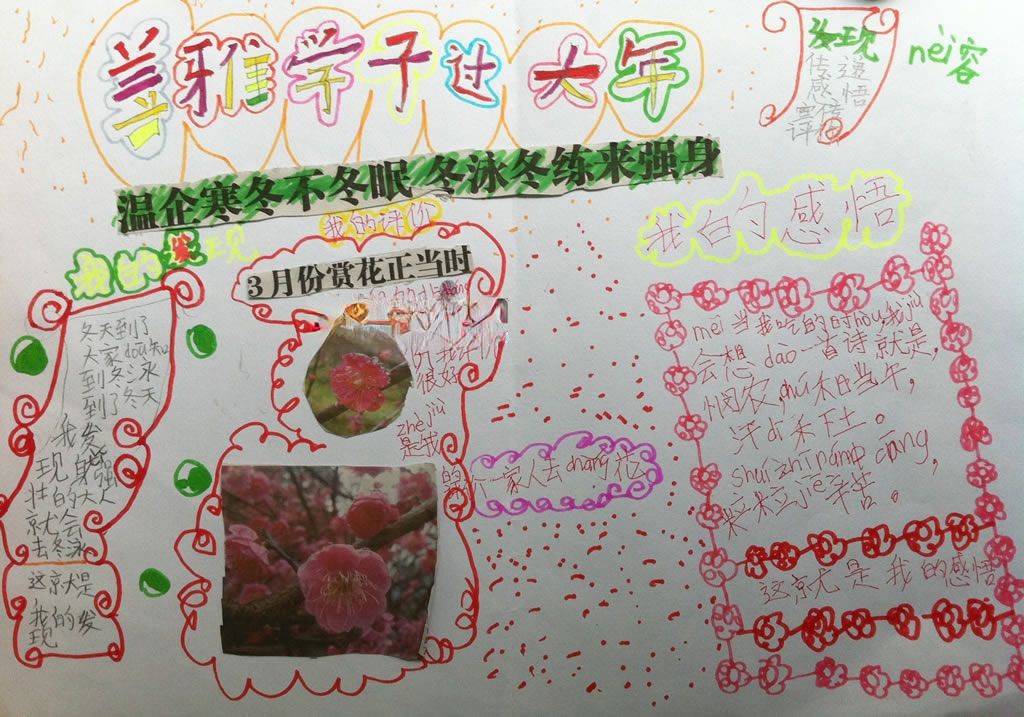 美雅学子过大年
发现
传递
感悟
宣传
评价
nèi容
温企寒冬不冬眠 冬泳冬练来强身
我的发现
冬天到了
大家dou知
到冬泳
到了冬天
我发
现身强
壮的大人
就会
去冬泳
这就是
我的发
现
我的评价
3月份赏花正当时
很好
zhe jiu
是我
的
一家人去shang花
我的感悟
mei当我吃的时hou,我jiu
会想dao一首诗就是,
悯农,chú禾日当午,
汗di禾下土。
shuízhīpánzhōng cāng,
粒粒jiē辛苦。
这就是我的感悟